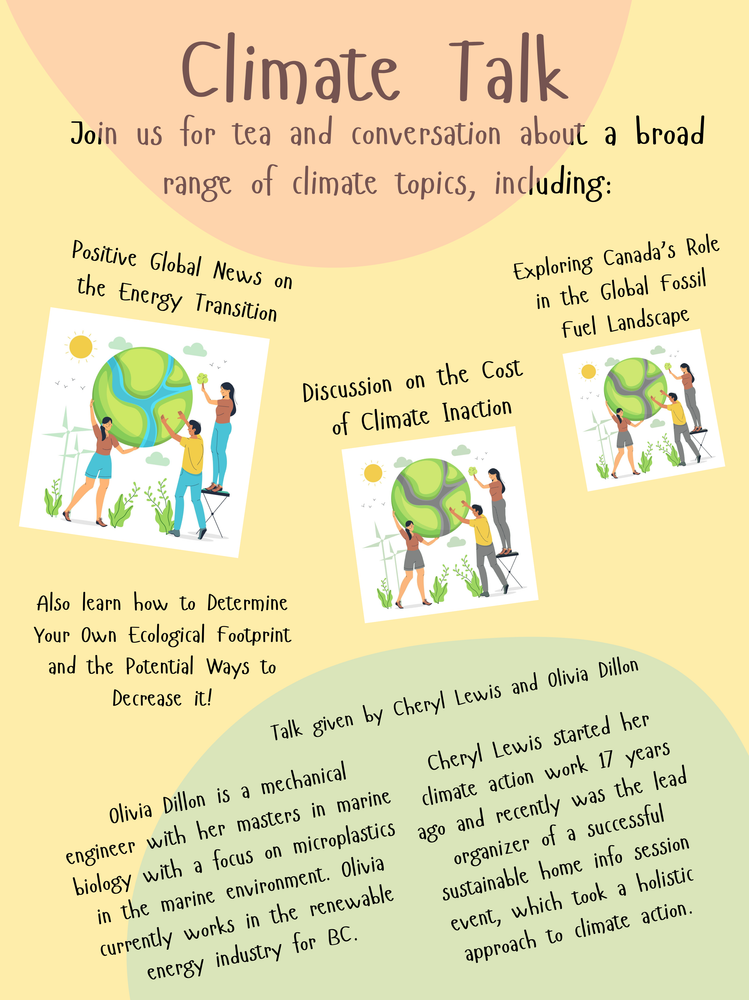 Climate Talk
Join us for tea and conversation about a broad
range of climate topics, including:
Positive Global News on
the Energy Transition
Exploring Canada's Role
in the Global Fossil
Fuel Landscape
Discussion on the Cost
of Climate Inaction
Also learn how to Determine
Your Own Ecological Footprint
and the Potential Ways to
Decrease it!
Talk given by Cheryl Lewis and Olivia Dillon
Olivia Dillon is a mechanical
engineer with her masters in marine
biology with a focus on microplastics
in the marine environment. Olivia
currently works in the renewable
energy industry for BC.
Cheryl Lewis started her
climate action work 17 years
ago and recently was the lead
organizer of a successful
sustainable home info session
event, which took a holistic
approach to climate action.